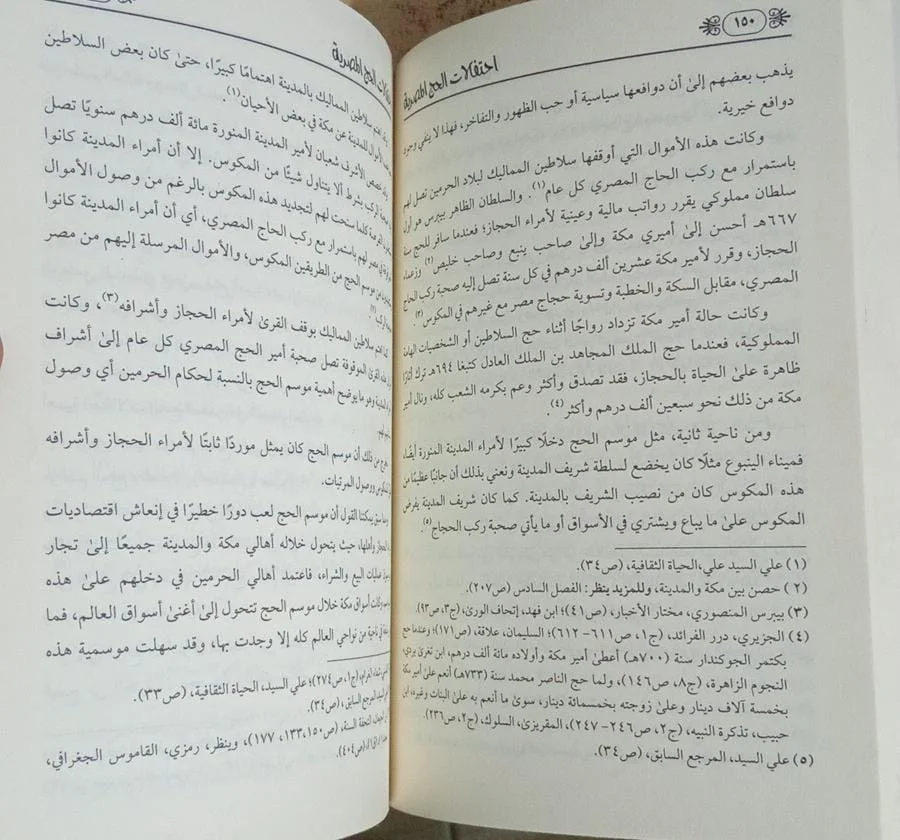 ١٥٠
احتفالات الحج المصرية
يذهب بعضهم إلىٰ أن دوافعها سياسية أو حب الظهور والتفاخر، فهذا لا ينفي وجود
دوافع خيرية.
وكانت هذه الأموال التي أوقفها سلاطين المماليك لبلاد الحرمين تصل لهم
باستمرار مع ركب الحاج المصري كل عام(١). والسلطان الظاهر بيبرس هو أول
سلطان مملوكي يقرر رواتب مالية وعينية لأمراء الحجاز؛ فعندما سافر للحج سنة
٦٦٧هـ أحسن إلىٰ أميري مكة وإلىٰ صاحب ينبع وصاحب خليص(٢) وزعماء
الحجاز، وقرر لأمير مكة عشرين ألف درهم في كل سنة تصل إليه صحبة ركب الحاج
المصري، مقابل السكة والخطبة وتسوية حجاج مصر مع غيرهم في المكوس(٣).
وكانت حالة أمير مكة تزداد رواجًا أثناء حج السلاطين أو الشخصيات الهامة
المملوكية، فعندما حج الملك المجاهد بن الملك العادل كتبغا ٦٩٤هـ ترك أثارًا
ظاهرة علىٰ الحياة بالحجاز، فقد تصدق وأكثر وعم بكرمه الشعب كله، ونال أمير
مكة من ذلك نحو سبعين ألف درهم وأكثر(٤).
ومن ناحية ثانية، مثل موسم الحج دخلًا كبيرًا لأمراء المدينة المنورة أيضًا،
فميناء الينبوع مثلًا كان يخضع لسلطة شريف المدينة ونعني بذلك أن جانبًا عظيمًا من
هذه المكوس كان من نصيب الشريف بالمدينة. كما كان شريف المدينة يفرض
المكوس علىٰ ما يباع ويشتري في الأسواق أو ما يأتي صحبة ركب الحجاج(٥).
(١) علي السيد علي،الحياة الثقافية، (ص٣٤).
(٢) حصن بين مكة والمدينة، وللمزيد ينظر: الفصل السادس (ص٢٠٧).
(٣) بيبرس المنصوري، مختار الأخبار، (ص٤١)؛ ابن فهد، إتحاف الورىٰ، (ج٣، ص٩٣).
(٤) الجزيري، درر الفرائد، (ج١، ص٦١١– ٦١٢)؛ السليمان، علاقة، (ص١٧١)؛ وعندما حج
بكتمر الجوكندار سنة (٧٠٠هـ) أعطىٰ أمير مكة وأولاده مائة ألف درهم، ابن تغري بردي،
النجوم الزاهرة، (ج٨، ص١٤٦)، ولما حج الناصر محمد سنة (٧٣٣هـ) أنعم علىٰ أمير مكة
بخمسة آلاف دينار وعلىٰ زوجته بخمسمائة دينار، سوىٰ ما أنعم به علىٰ البنات وغيره، ابن
حبيب، تذكرة النبيه، (ج٢، ص٢٤٦– ٢٤٧)، المقريزي، السلوك، (ج٢، ص٢٣٦).
(٥) علي السيد، المرجع السابق، (ص٣٤).
الحج المصرية
سلاطين المماليك بالمدينة اهتمامًا كبيرًا، حتىٰ كان بعض السلاطين
الأموال للمدينة عن مكة في بعض الأحيان(١).
خصص الأشرف شعبان لأمير المدينة المنورة مائة ألف درهم سنويًا تصل
الركب بشرط ألا يتناول شيئًا من المكوس. إلا أن أمراء المدينة كانوا
الفرصة كلما سنحت لهم لتجديد هذه المكوس بالرغم من وصول الأموال
في مصر لهم باستمرار مع ركب الحاج المصري، أي أن أمراء المدينة كانوا
من موسم الحج من الطريقين المكوس، والأموال المرسلة إليهم من مصر
(٢).
سلاطين المماليك بوقف القرىٰ لأمراء الحجاز وأشرافه(٣)، وكانت
القرىٰ الموقوفة تصل صحبة أمير الحج المصري كل عام إلىٰ أشراف
وهو ما يوضح أهمية موسم الحج بالنسبة لحكام الحرمين أي وصول
من ذلك أن موسم الحج كان يمثل موردًا ثابتًا لأمراء الحجاز وأشرافه
ووصول المرتبات.
سبق يمكننا القول أن موسم الحج لعب دورًا خطيرًا في إنعاش اقتصاديات
وأهلها، حيث يتحول خلاله أهالي مكة والمدينة جميعًا إلىٰ تجار
عمليات البيع والشراء، فاعتمد أهالي الحرمين في دخلهم علىٰ هذه
وكانت أسواق مكة خلال موسم الحج تتحول إلىٰ أغنىٰ أسواق العالم، فما
في ناحية من نواحي العالم كله إلا وجدت بها، وقد سهلت موسمية هذه
(ج١، ص٢٧٤)؛ علي السيد، الحياة الثقافية، (ص٣٣).
المرجع السابق، (ص٣٤).
التحفة السنية، (ص١٥٠، ١٣٣، ١٧٧)، وينظر، رمزي، القاموس الجغرافي،
(ص٤٠٤).